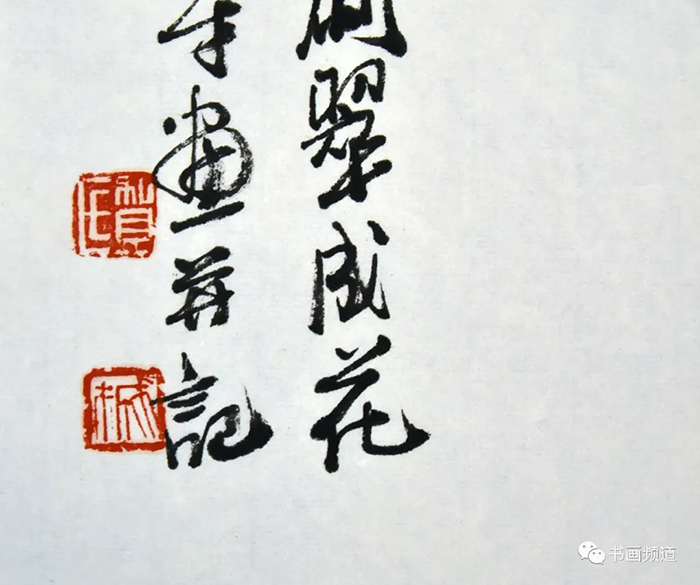 翠成花
年畫并記
书画频道